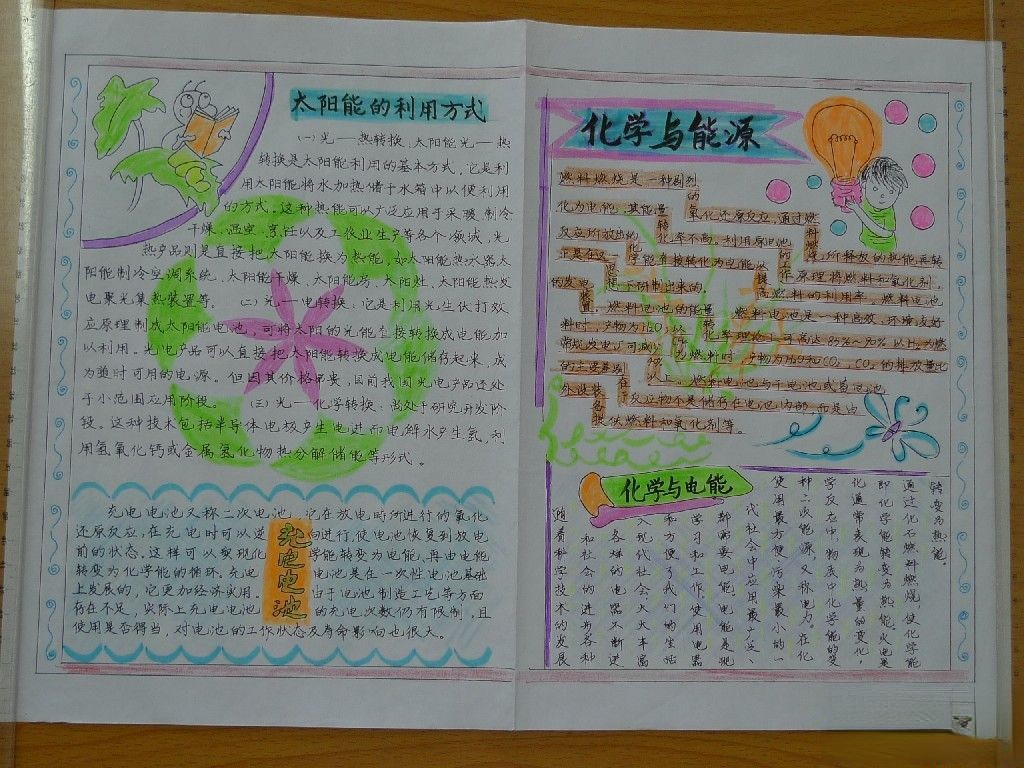 太阳能的利用方式
(一)光—热转换,太阳能光—热
转换是太阳能利用的基本方式。它是利
用太阳能将水加热储于水箱中以便利用
的方式。这种热能可以广泛应用于采暖,制冷
干燥、温室、烹饪以及工农业生产等各个领域,光
热产品则是直接把太阳能换为热能,如太阳能热水器太
阳能制冷空调系统、太阳能干燥、太阳能房、太阳灶、太阳能热发
电聚光集热装置等。(二)光—电转换:它是利用光生伏打效
应原理制成太阳能电池,可将太阳的光能直接转换成电能加
以利用。光电产品可以直接把太阳能转换成电能储存起来,成
为随时可用的电源。但因其价格昂贵,目前我国光电产品还处
于小范围应用阶段。(三)光—化学转换:尚处于研究开发阶
段。这种技术包括半导体电极产生电进而电解水产生氢,利
用氢氧化钙或金属氢化物热分解储能等形式。
充电电池
充电电池又称二次电池,它在放电时所进行的氧化
还原反应,在充电时可以逆向进行,使电池恢复到放电
前的状态。这样可以实现化学能转变为电能,再由电能
转变为化学能的循环。充电电池是在一次性电池基础
上发展的,它更加经济实用。由于电池制造工艺等方面
存在不足,实际上充电电池的充电次数仍有限制,且
使用是否得当,对电池的工作状态及寿命影响也很大。
化学与能源
燃料燃烧是一种剧烈
的氧化还原反应,通过燃
料燃烧,所释放的热能再转
化为电能,其能量
转化率不高。利用原电池
的工作原理将燃料和氧化剂
反应所放出的
化学能直接转化为电能
提高燃料的利用率。燃料电池
正是在这
思想下研制出来的。
的发电装置。燃料电池的能量
燃料电池是一种高效、环境友好
可高达85%~90%以上,为燃
产物为H2O和CO2,CO2的排放量比
常规发电厂可减少
以上。燃料电池与干电池或蓄电池
的主要差别在于反应物不是储存在电池内部,而是由
外设装备提供燃料和氧化剂等。
化学与电能
随着科学技术的发展
和社会的进步各种
各样的电器不断进
入现代社会,大大丰富
和方便了我们的生活
学习和工作,使用电器
都需要电能,电能是现
代社会中应用最广泛、
使用最方便、污染最小的一
种二次能源,又称电力。在化
学反应中,物质中化学能的变
化通常表现为热量的变化,
即化学能转变为热能,火电是
通过化石燃料燃烧,使化学能
转变为热能。